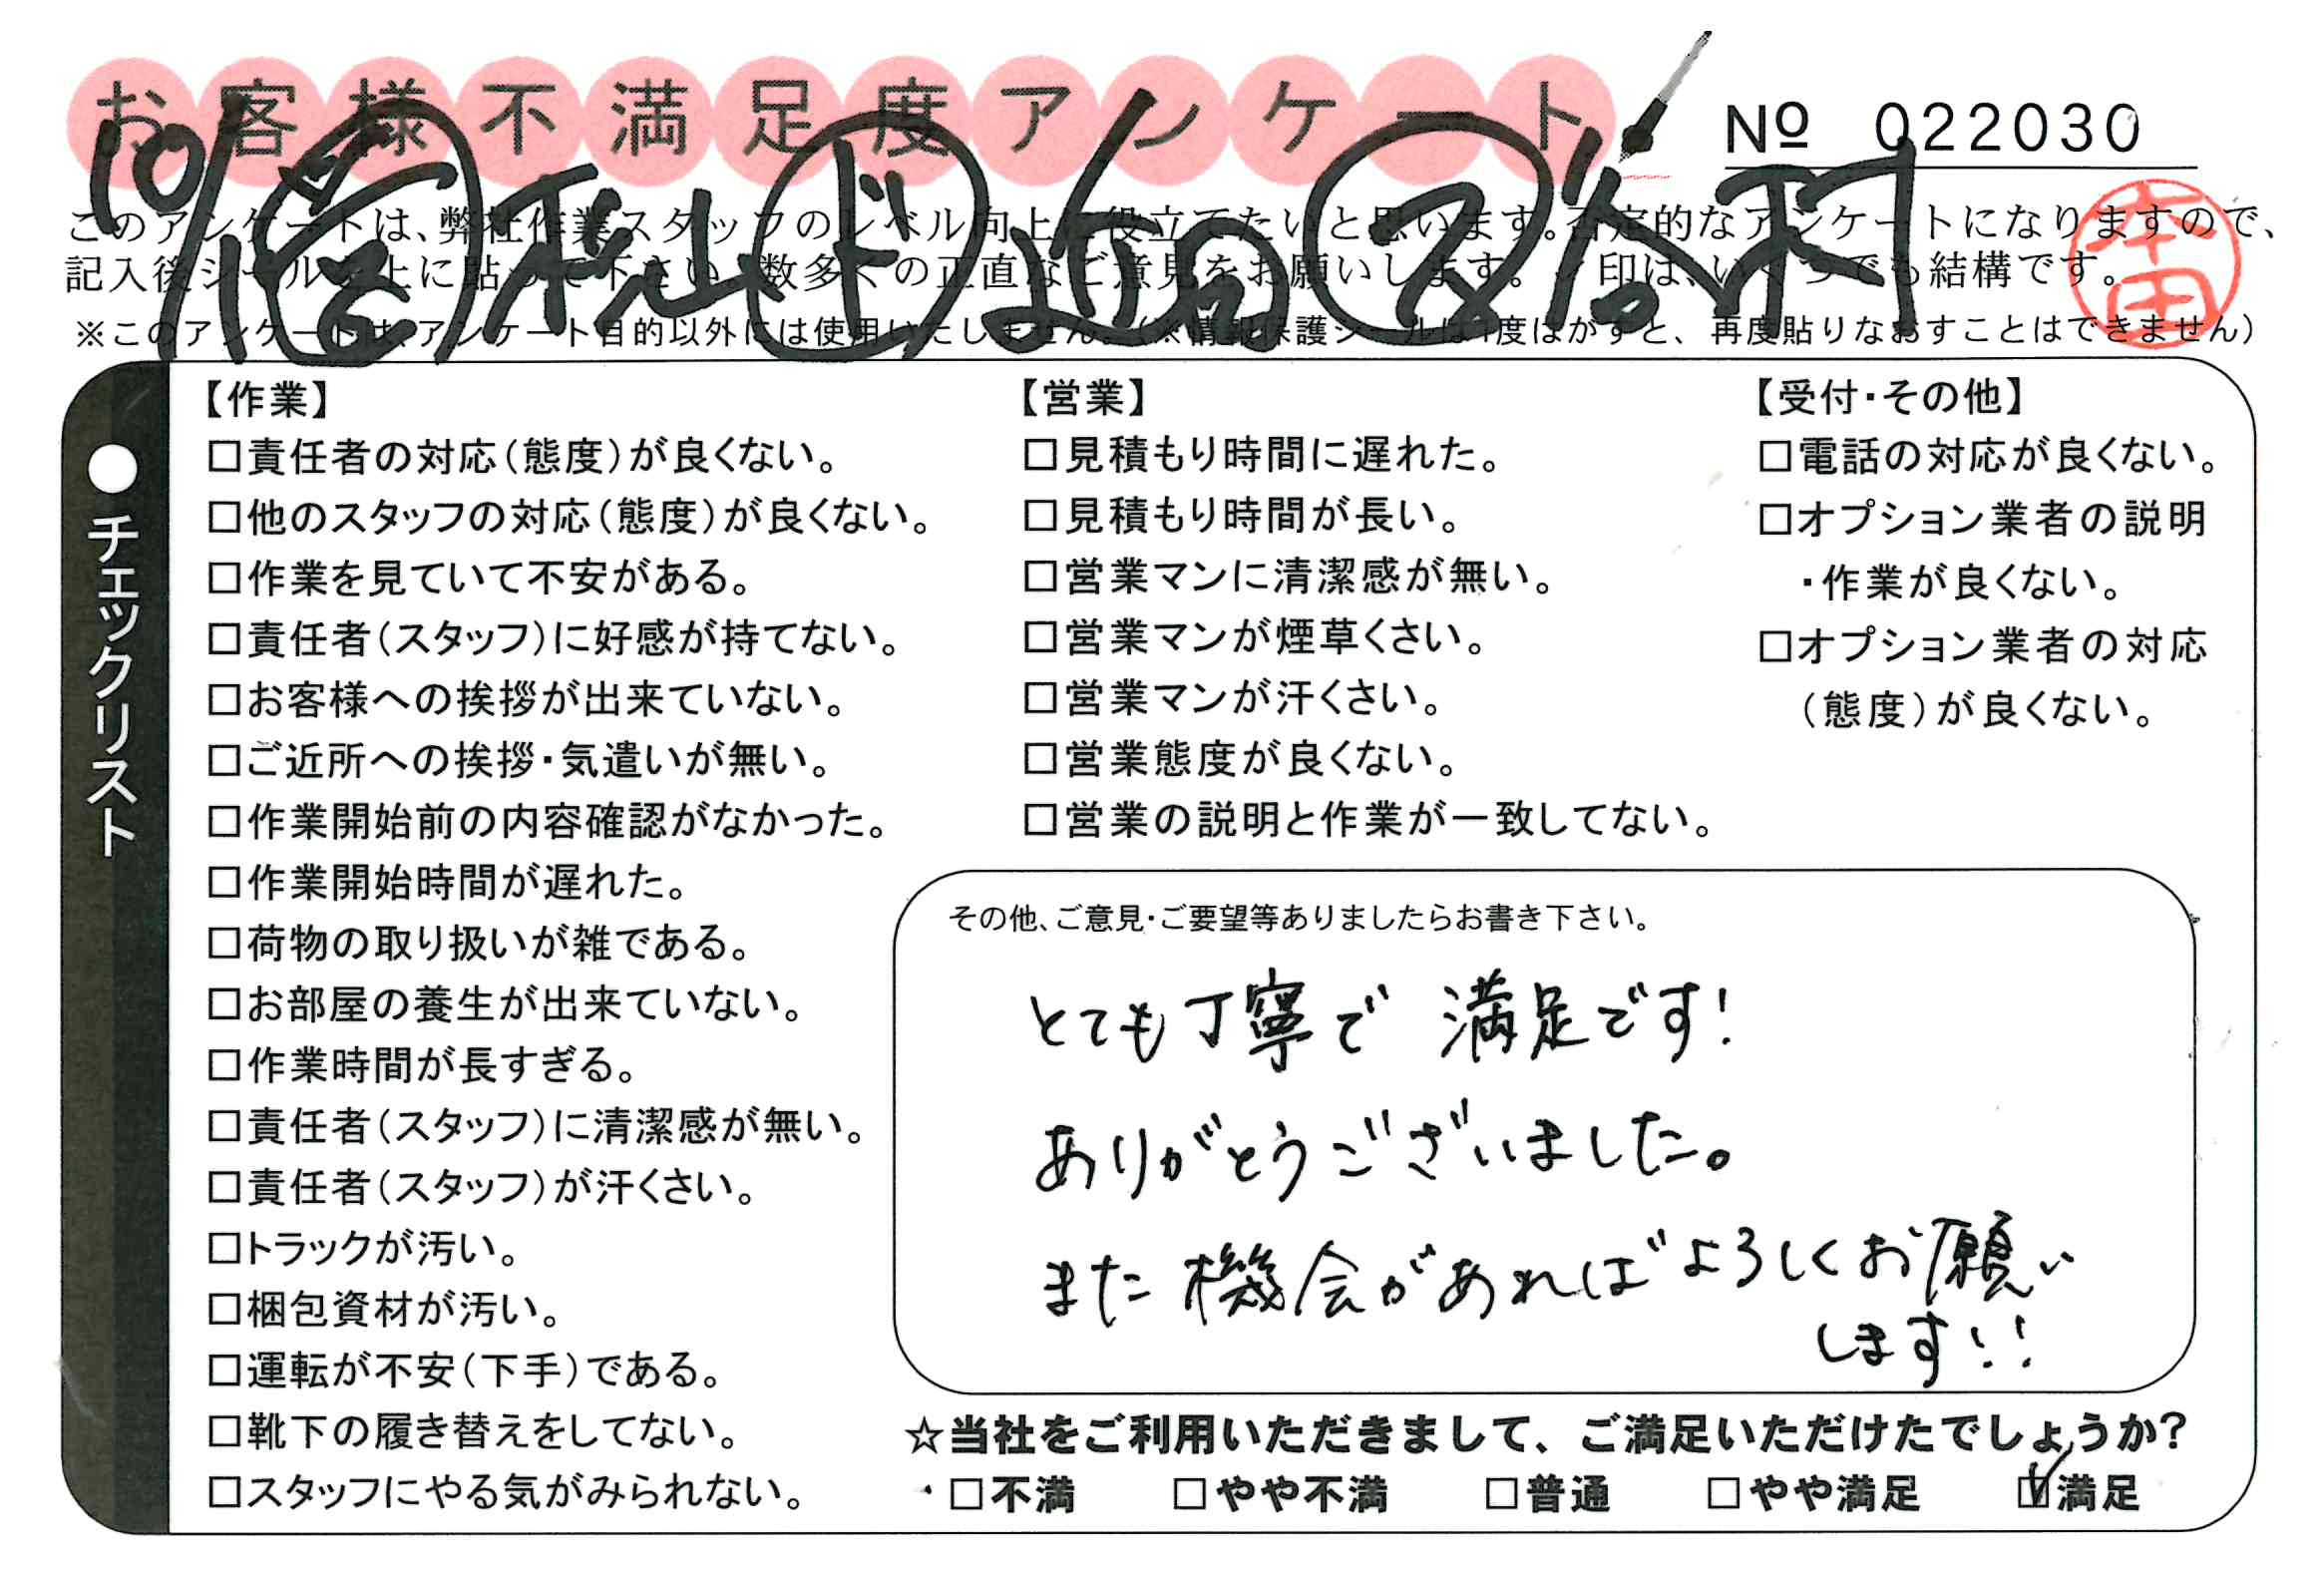 お客様不満足度アンケート
№ 022030
10/1 営 秋山 ド 山口 ス 谷 木村
本田
このアンケートは、弊社作業スタッフのレベル向上に役立てたいと思います。否定的なアンケートになりますので、
記入後シールを上に貼って下さい。数多くの正直なご意見をお願いします。✓印は、いくつでも結構です。
※このアンケートは、アンケート目的以外には使用いたしません。(※情報保護シールは1度はがすと、再度貼りなおすことはできません)
●チェックリスト
【作業】
□責任者の対応(態度)が良くない。
□他のスタッフの対応(態度)が良くない。
□作業を見ていて不安がある。
□責任者(スタッフ)に好感が持てない。
□お客様への挨拶が出来ていない。
□ご近所への挨拶・気遣いが無い。
□作業開始前の内容確認がなかった。
□作業開始時間が遅れた。
□荷物の取り扱いが雑である。
□お部屋の養生が出来ていない。
□作業時間が長すぎる。
□責任者(スタッフ)に清潔感が無い。
□責任者(スタッフ)が汗くさい。
□トラックが汚い。
□梱包資材が汚い。
□運転が不安(下手)である。
□靴下の履き替えをしてない。
□スタッフにやる気がみられない。
【営業】
□見積もり時間に遅れた。
□見積もり時間が長い。
□営業マンに清潔感が無い。
□営業マンが煙草くさい。
□営業マンが汗くさい。
□営業態度が良くない。
□営業の説明と作業が一致してない。
【受付・その他】
□電話の対応が良くない。
□オプション業者の説明
・作業が良くない。
□オプション業者の対応
(態度)が良くない。
その他、ご意見・ご要望等ありましたらお書き下さい。
とても丁寧で 満足です!
ありがとうございました。
また機会があればよろしくお願い
します!!
☆当社をご利用いただきまして、ご満足いただけたでしょうか?
□不満 □やや不満 □普通 □やや満足 ☑満足